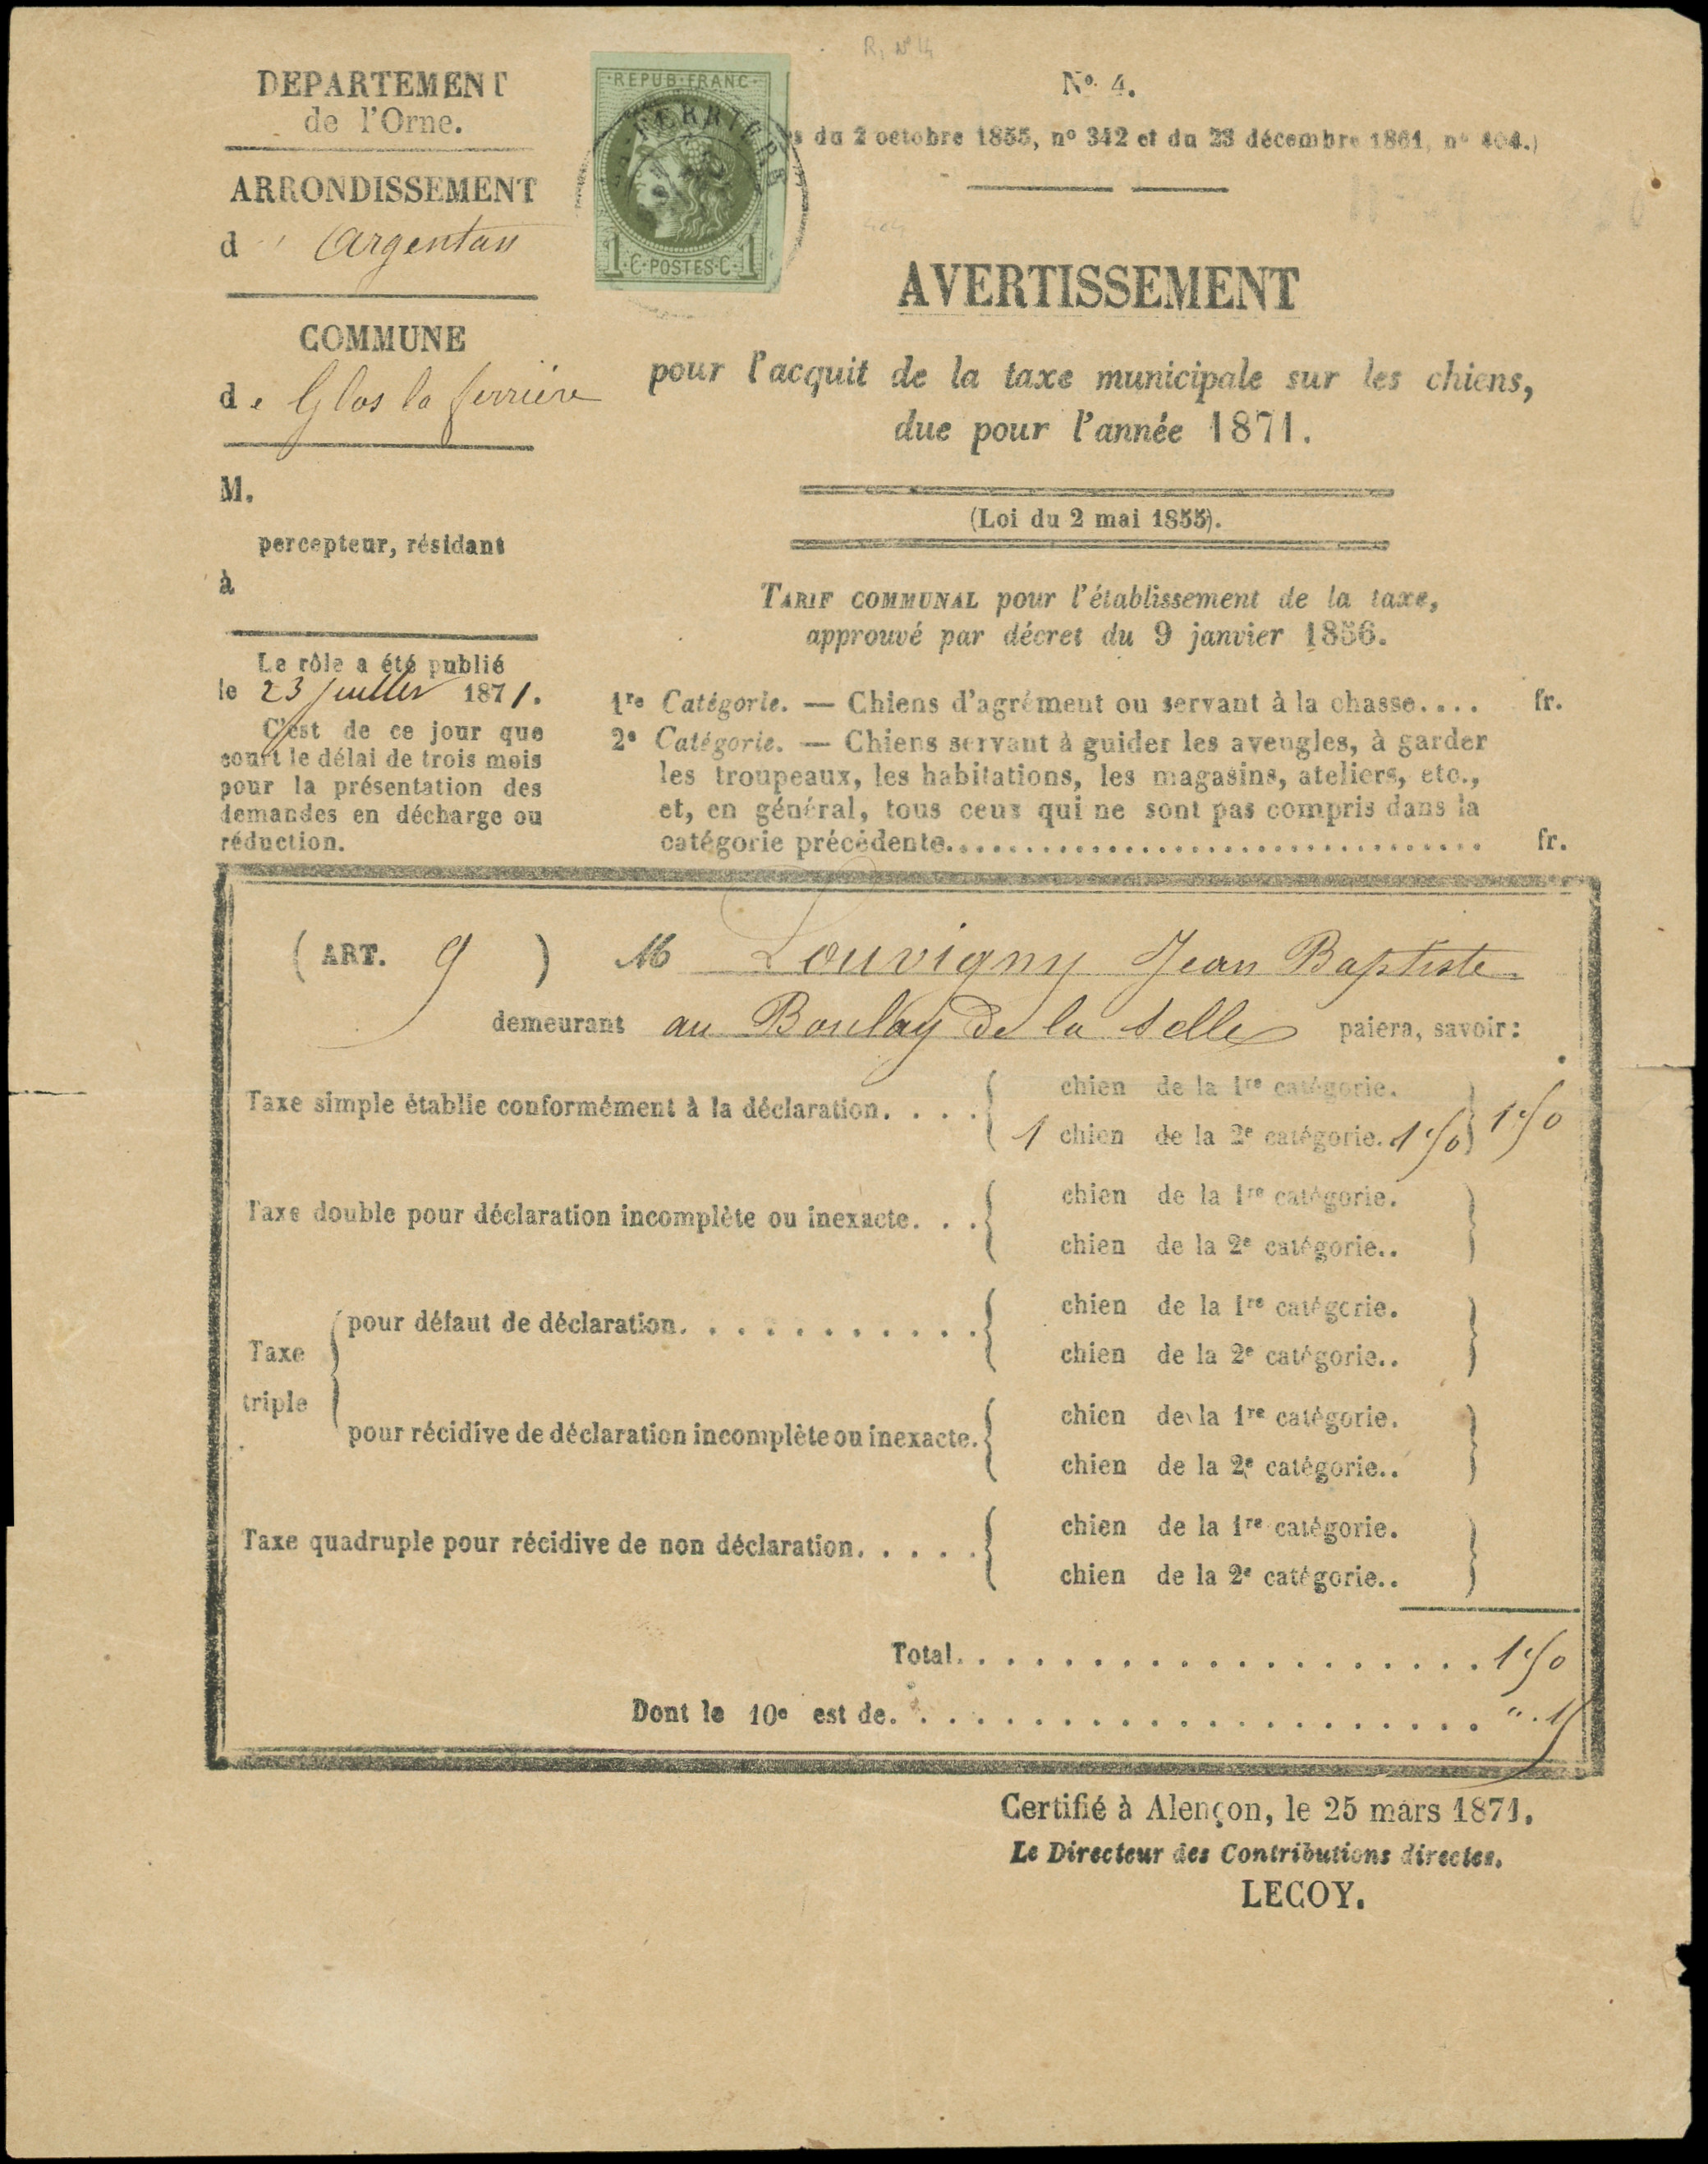 R, Nº 4
DEPARTEMENT
de l'Orne.
ARRONDISSEMENT
d' Argentan
COMMUNE
de Glos la ferrière
M.
percepteur, résidant
à
Le rôle a été publié
le 23 juillet 1871.
C'est de ce jour que
court le délai de trois mois
pour la présentation des
demandes en décharge ou
réduction.
REPUB·FRANC
FERRIERE
1·C·POSTES·C·1
Nº 4.
s du 2 octobre 1855, nº 342 et du 23 décembre 1861, nº 404.)
AVERTISSEMENT
pour l'acquit de la taxe municipale sur les chiens,
due pour l'année 1871.
(Loi du 2 mai 1855).
TARIF COMMUNAL pour l'établissement de la taxe,
approuvé par décret du 9 janvier 1856.
1re Catégorie. — Chiens d'agrément ou servant à la chasse.... fr.
2e Catégorie. — Chiens servant à guider les aveugles, à garder
les troupeaux, les habitations, les magasins, ateliers, etc.,
et, en général, tous ceux qui ne sont pas compris dans la
catégorie précédente.................................. fr.
(ART. 9 ) M Louvigny Jean Baptiste
demeurant au Boulay de la selle paiera, savoir:
chien de la 1re catégorie.
Taxe simple établie conformément à la déclaration. . . .
1 chien de la 2e catégorie. 1 50 1 50
chien de la 1re catégorie.
Taxe double pour déclaration incomplète ou inexacte. . .
chien de la 2e catégorie..
chien de la 1re catégorie.
pour défaut de déclaration. . . . . . . . . . .
Taxe
chien de la 2e catégorie..
triple
chien de la 1re catégorie.
pour récidive de déclaration incomplète ou inexacte.
chien de la 2e catégorie..
chien de la 1re catégorie.
Taxe quadruple pour récidive de non déclaration. . . . .
chien de la 2e catégorie..
Total. . . . . . . . . . . . . . . . . . . 1 50
Dont le 10e est de. . . . . . . . . . . . . . . . . . . . . " . 15
Certifié à Alençon, le 25 mars 1871.
Le Directeur des Contributions directes,
LECOY.